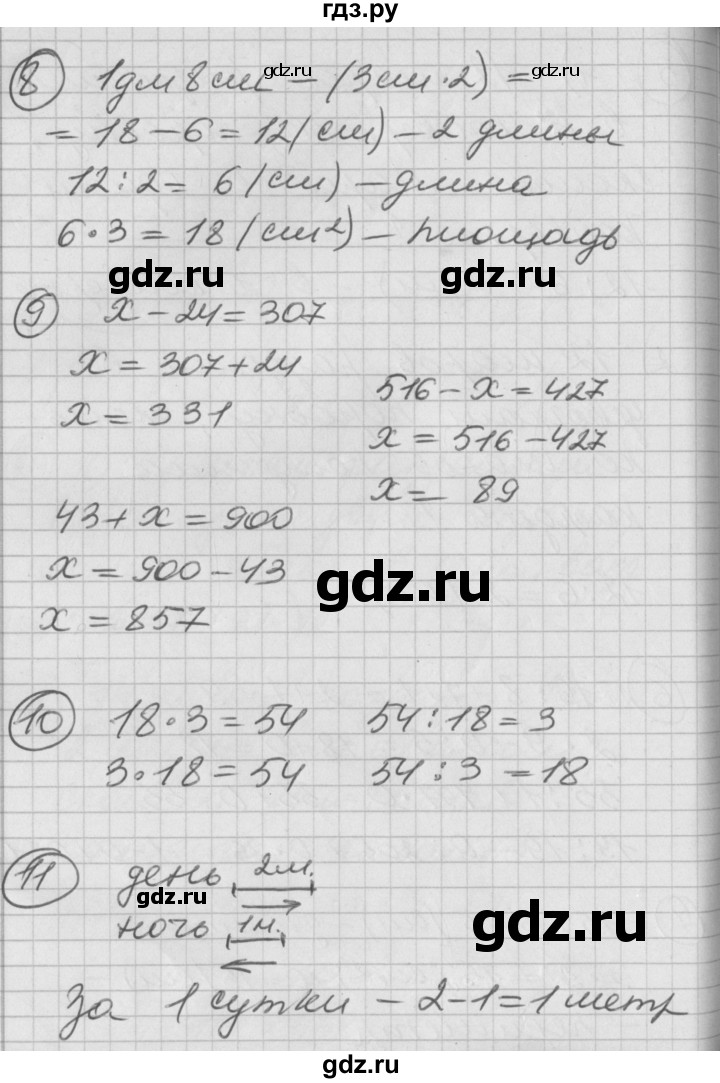 гдз.ру
8 1дм 8см – (3см · 2) =
= 18 – 6 = 12 (см) – 2 длины
12 : 2 = 6 (см) – длина
6 · 3 = 18 (см²) – площадь
9 x – 24 = 307
x = 307 + 24
x = 331
516 – x = 427
x = 516 – 427
x = 89
43 + x = 900
x = 900 – 43
x = 857
10 18 · 3 = 54 54 : 18 = 3
3 · 18 = 54 54 : 3 = 18
11 день 2м.
ночь 1м.
За 1 сутки – 2 – 1 = 1 метр
gdz.ru
gdz.ru
gdz.ru
gdz.ru
gdz.ru
gdz.ru
gdz.ru
gdz.ru